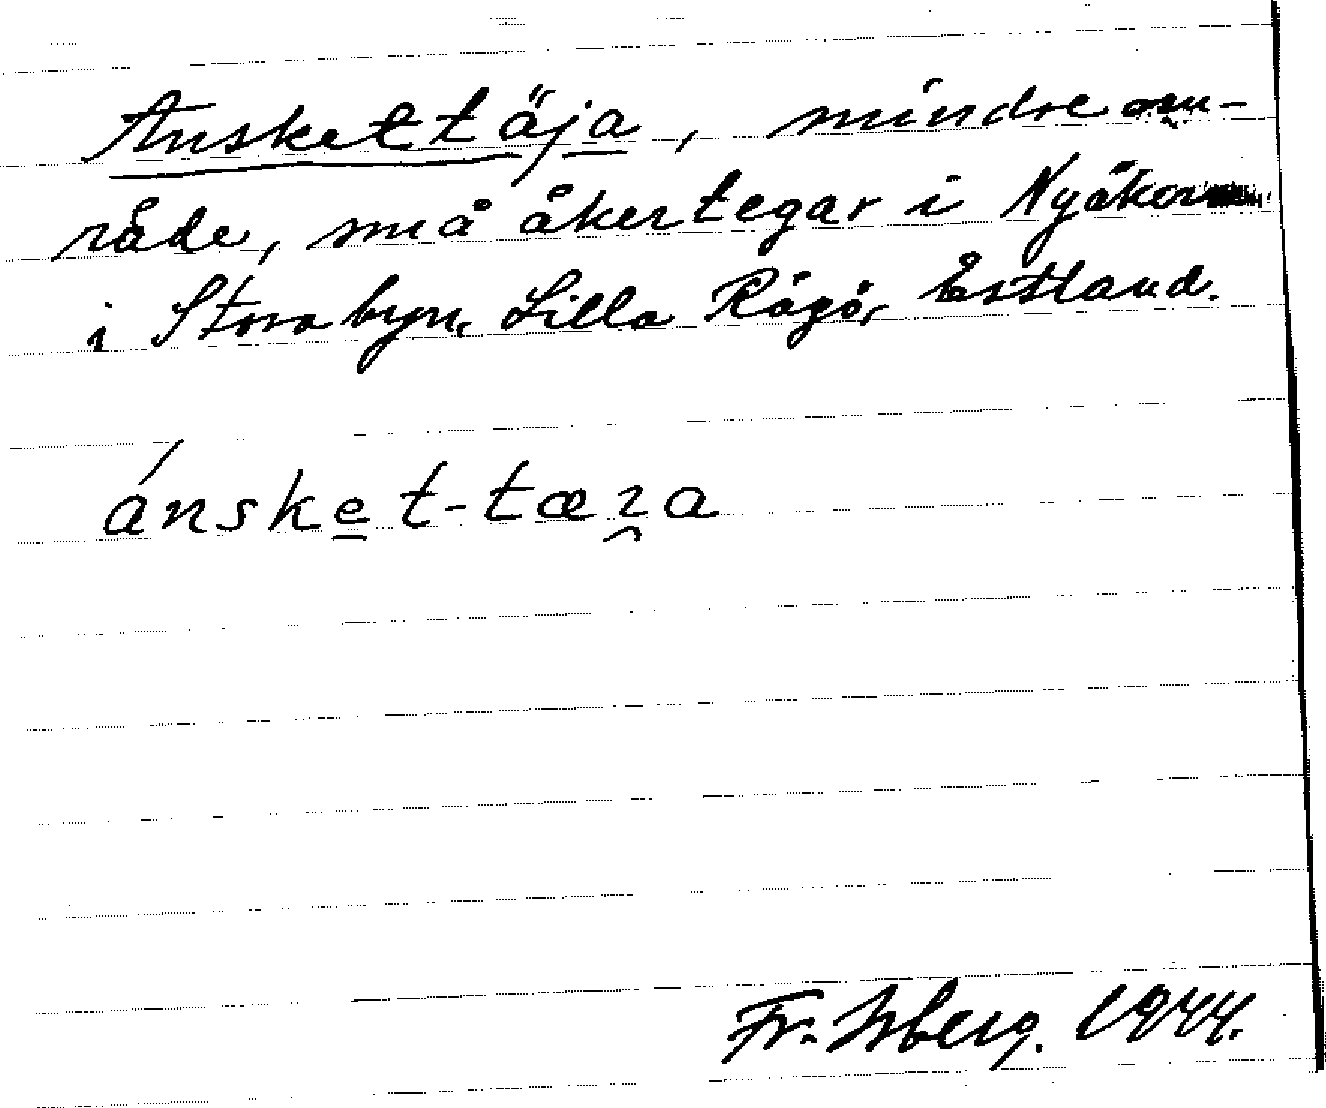 Anskettäja, mindre om-
råde, små åkertegar i Nyåker
i Stora byn, Lilla Rågö, Estland.
ánsket-tæɿa
Fr. Isberg. 1944.